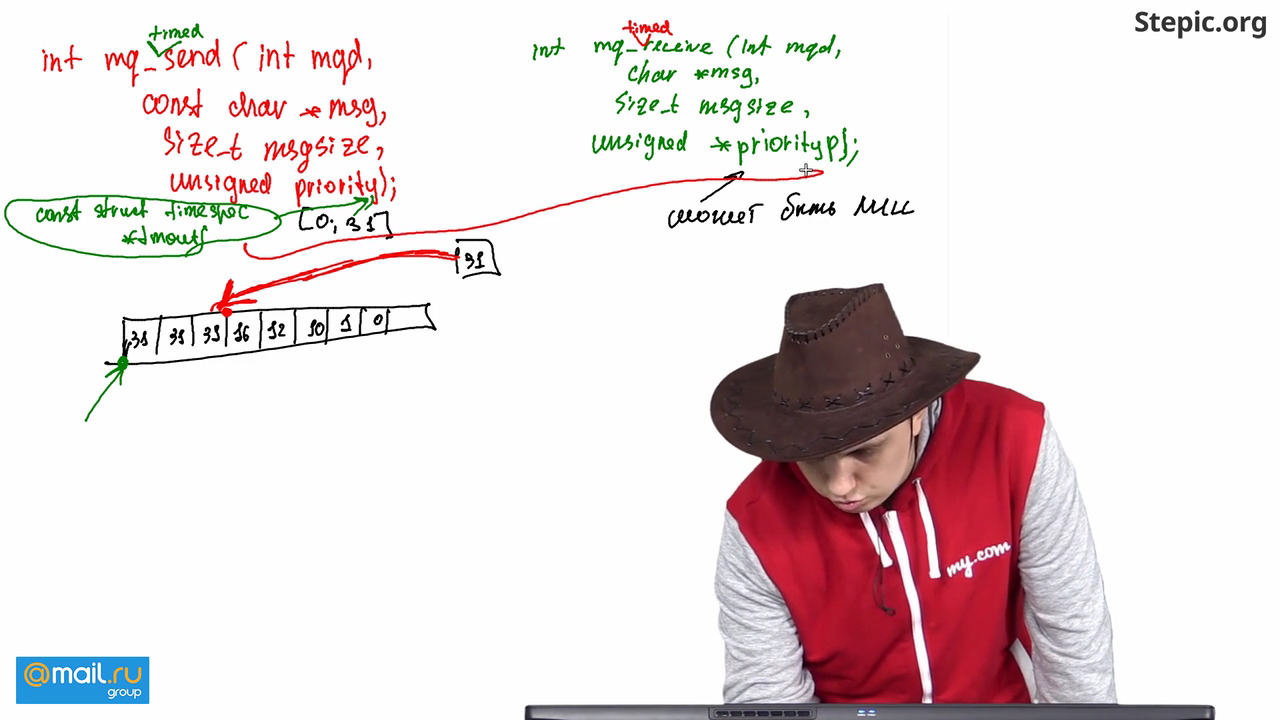 Stepic.org
timed
int mq_send ( int mqd,
const char *msg,
size_t msgsize,
unsigned priority);
const struct timespec
[0; 31]
timed
int mq_receive (int mqd,
char *msg,
size_t msgsize,
unsigned *priorityp);
может быть
31
31 31 31 16 12 10 1 0
my.com
@mail.ru
group